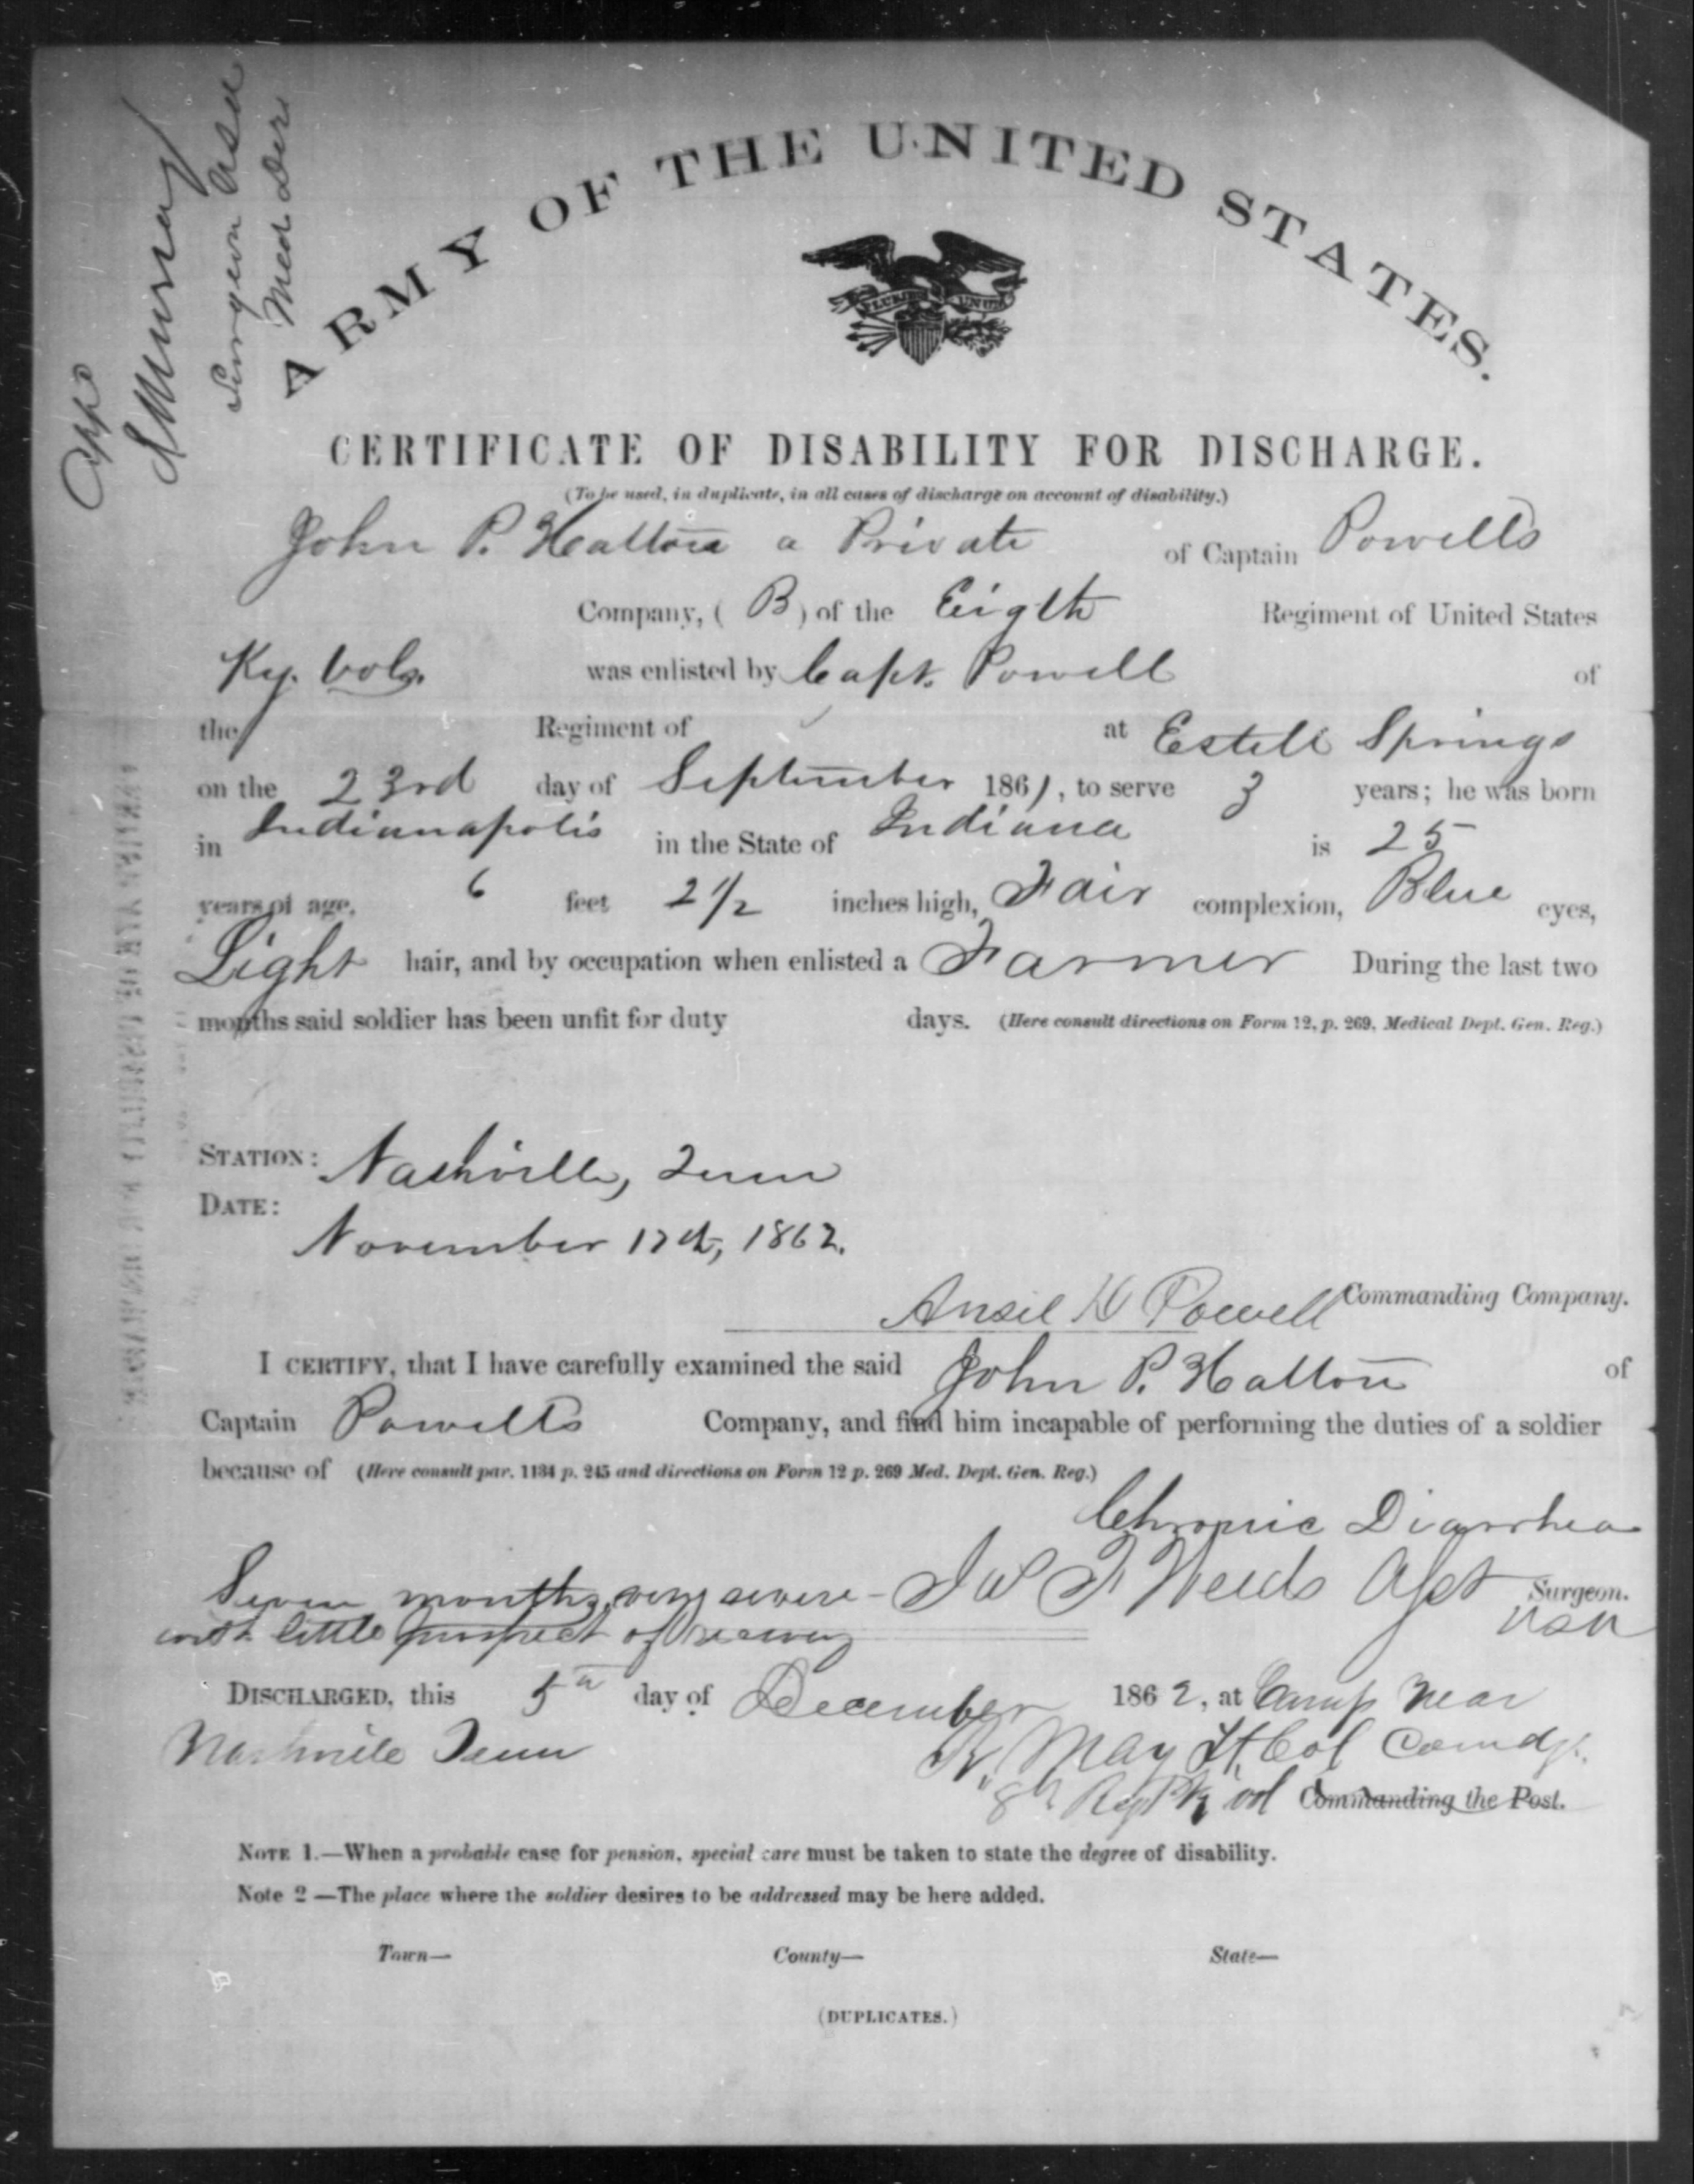 App
S Murray
Surgeon USA
Med Dir
ARMY OF THE UNITED STATES.
CERTIFICATE OF DISABILITY FOR DISCHARGE.
(To be used, in duplicate, in all cases of discharge on account of disability.)
John P. Hatton a Private of Captain Powells
Company, (B) of the Eigth Regiment of United States
Ky. Vols. was enlisted by Capt. Powell of
the Regiment of at Estill Springs
on the 23rd day of September 1861, to serve 3 years; he was born
in Indianapolis in the State of Indiana is 25
years of age, 6 feet 2 1/2 inches high, Fair complexion, Blue eyes,
Light hair, and by occupation when enlisted a Farmer During the last two
months said soldier has been unfit for duty days. (Here consult directions on Form 12, p. 269, Medical Dept. Gen. Reg.)
STATION: Nashville, Tenn
DATE:
November 17th, 1862.
Ansil D Powell Commanding Company.
I CERTIFY, that I have carefully examined the said John P. Hatton of
Captain Powells Company, and find him incapable of performing the duties of a soldier
because of (Here consult par. 1134 p. 245 and directions on Form 12 p. 269 Med. Dept. Gen. Reg.)
Chronic Diarrhea
Seven months, very severe - Weeds Asst Surgeon.
with little prospect of recovery USA
DISCHARGED, this 5th day of December 1862, at Camp Near
Nashville Tenn R. May Lt. Col Comdg.
8th Regt Ky Vol Commanding the Post.
NOTE 1.—When a probable case for pension, special care must be taken to state the degree of disability.
Note 2—The place where the soldier desires to be addressed may be here added.
Town— County— State—
(DUPLICATES.)